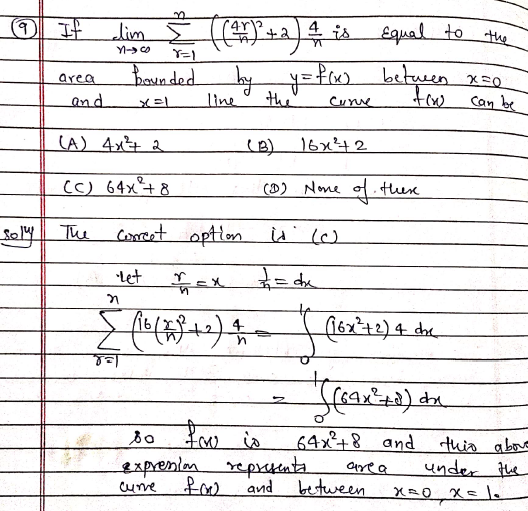 9) If lim n→∞ n Σ r=1 ((4r/n)² + 2) 4/n is equal to the
area bounded by y=f(x) between x=0
and x=1 line the curve f(x) can be
(A) 4x²+2 (B) 16x²+2
(C) 64x²+8 (D) None of these
Solⁿ The correct option is (c)
let r/n = x 1/n = dx
n Σ r=1 (16(r/n)²+2) 4/n = ∫₀¹ (16x²+2) 4 dx
= ∫₀¹ (64x²+8) dx
so f(x) is 64x²+8 and this above
expression represents area under the
curve f(x) and between x=0, x=1.